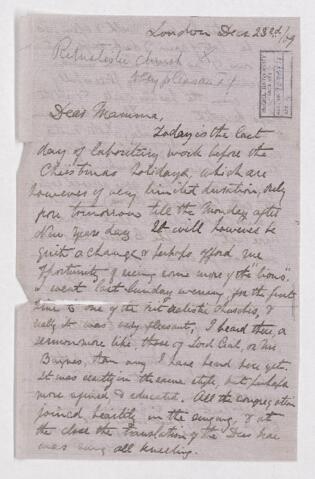 London Dec 23rd/79
Ritualistic church
very pleasant
Dear Mamma,
Today is the last
day of laboratory work before the
Christmas holidays, which are
however of very limited duration, only
from tomorrow till the Monday after
New Years day. It will however be
quite a change & perhaps afford me
opportunity of seeing some more of the "lions".
I went last Sunday evening, for the first
time to one of the Ritualistic churches, &
really it was very pleasant, I heard there, a
sermon more like, those of Lord Cecil, or Mr
Baynes, than any I have heard here yet.
It was exactly in the same style, but perhaps
more refined & educated. All the congregation
joined heartily in the singing, & at
the close the translation of the Dies Irae
was sung all kneeling.